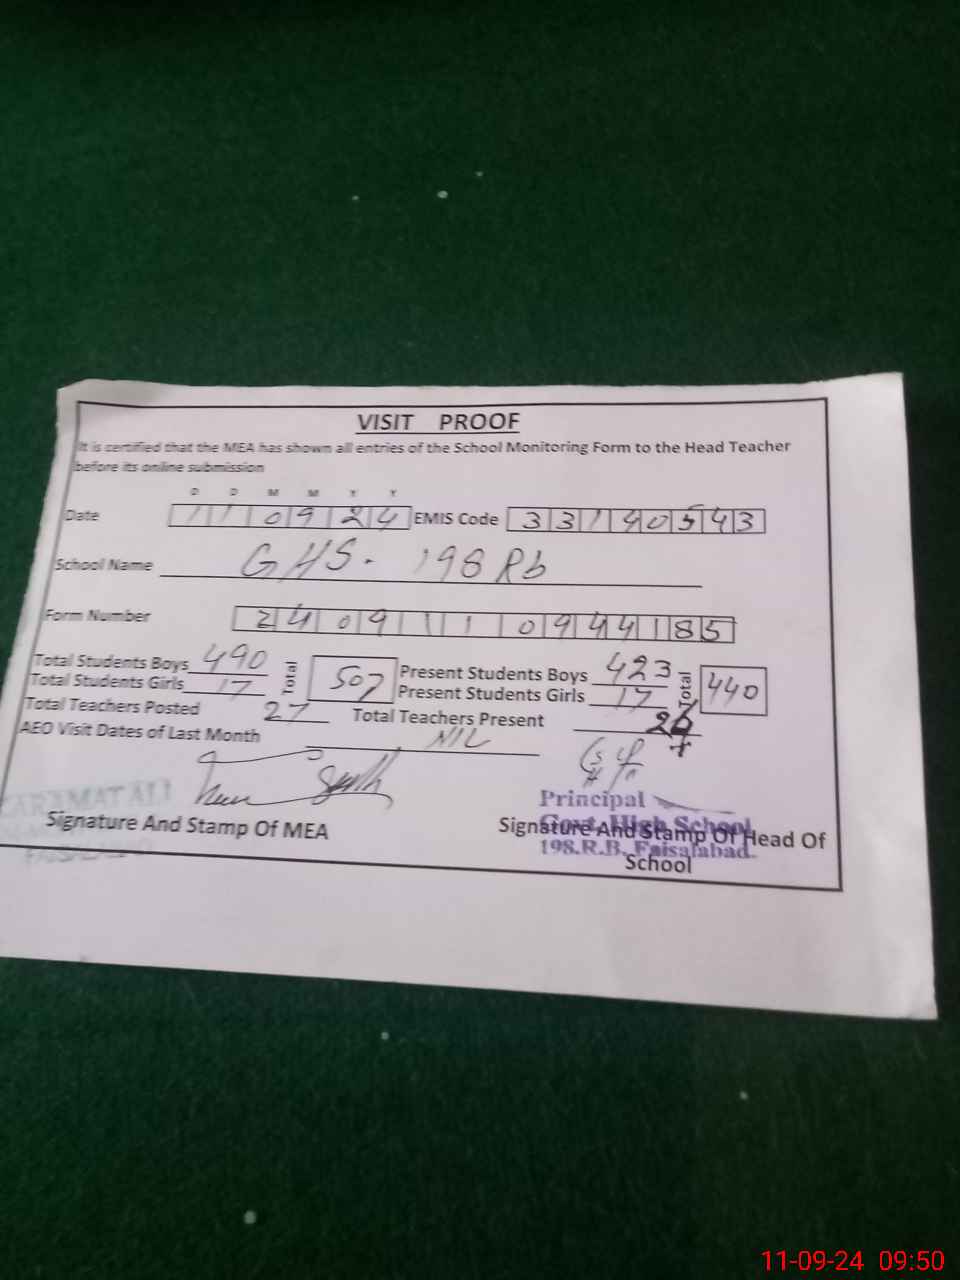 VISIT PROOF
It is certified that the MEA has shown all entries of the School Monitoring Form to the Head Teacher
before its online submission
D D M M Y Y
Date 110924 EMIS Code 33140543
School Name GHS. 198 Rb
Form Number 2409110944185
Total Students Boys 490 Total 507 Present Students Boys 423 Total 440
Total Students Girls 17 Present Students Girls 17
Total Teachers Posted 27 Total Teachers Present
AEO Visit Dates of Last Month NIL
KARAMAT ALI
Signature And Stamp Of MEA
FAISALABAD
Principal
Govt. High School
198.R.B. Faisalabad.
Signature And Stamp Of Head Of
School
11-09-24 09:50